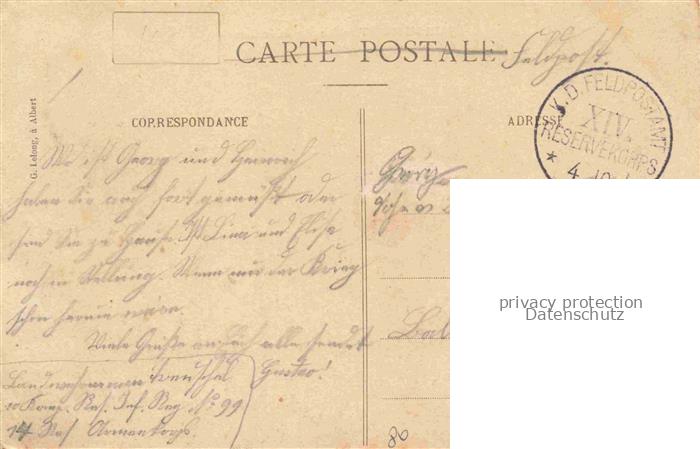 CARTE POSTALE
Feldpost.
K.D. FELDPOSTAMT
XIV.
RESERVEKORPS
* 4
CORRESPONDANCE
ADRESSE
G. Lelong, à Albert
Wo ist Georg und Heinrich
haben Sie auch fort gemüßt oder
sind Sie zu Hause. Ist Lina und Elise
noch in Stellung. Wenn nur der Krieg
schon herum wäre.
Viele Grüße an Euch alle sendet
Gustav!
Landwehrmann
10 Komp. Res. Inf. Reg No 99
14 Res Armeekorps.
privacy protection
Datenschutz
86